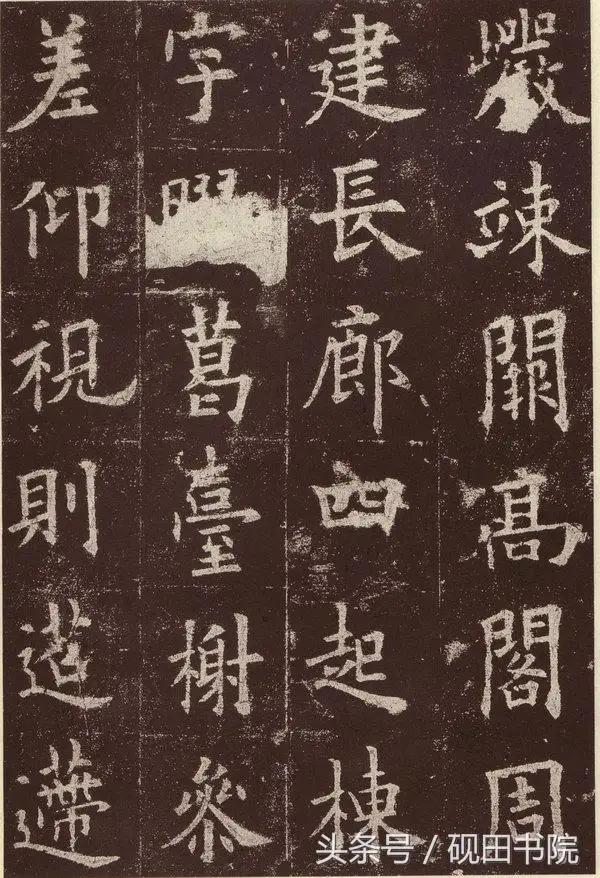 巖竦闕髙閣周
建長廊四起棟
宇葛臺榭參
差仰視則迢遰
头条号 / 砚田书院